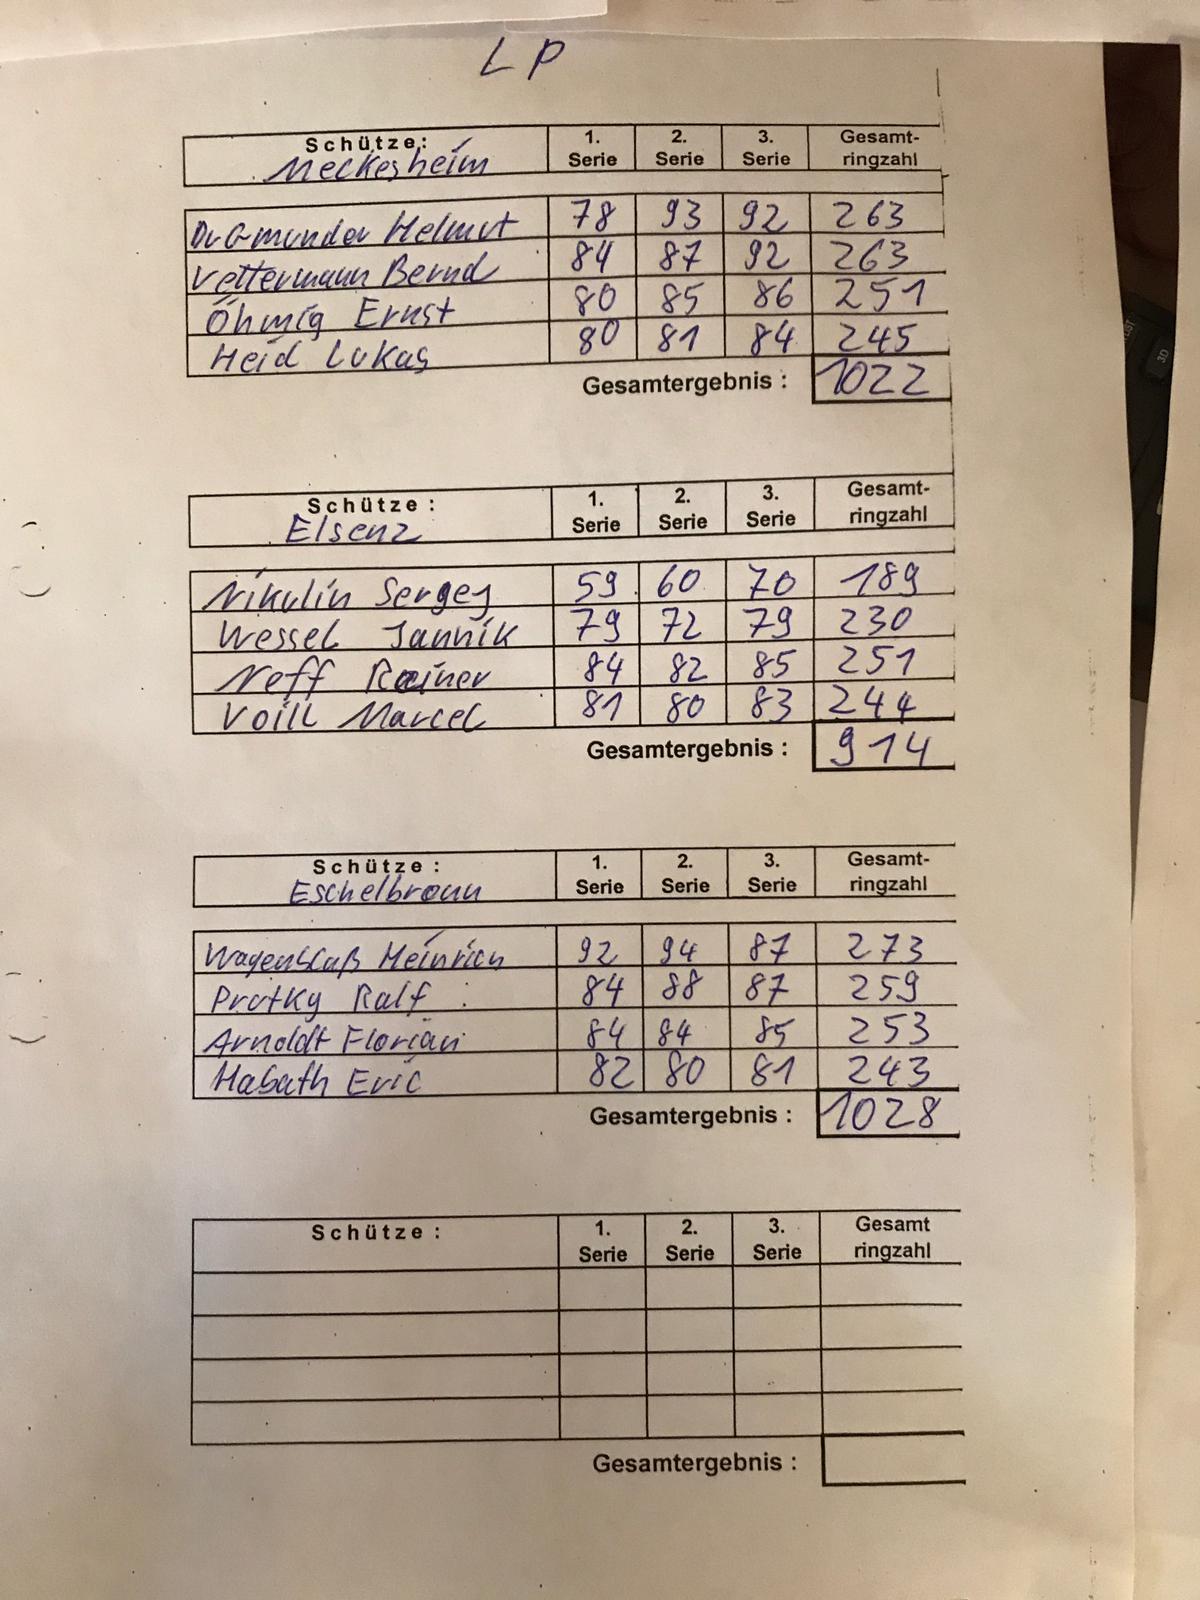 LP
Schütze: 1. Serie 2. Serie 3. Serie Gesamt-ringzahl
Meckesheim
Dr. Gmunder Helmut 78 93 92 263
Vettermann Bernd 84 87 92 263
Öhmig Ernst 80 85 86 251
Heid Lukas 80 81 84 245
Gesamtergebnis : 1022
Schütze : 1. Serie 2. Serie 3. Serie Gesamt-ringzahl
Elsenz
Nikulin Sergej 59 60 70 189
Wessel Jannik 79 72 79 230
Neff Rainer 84 82 85 251
Voill Marcel 81 80 83 244
Gesamtergebnis : 914
Schütze : 1. Serie 2. Serie 3. Serie Gesamt-ringzahl
Eschelbronn
Wagenblaß Heinrich 92 94 87 273
Protky Ralf 84 88 87 259
Arnoldt Florian 84 84 85 253
Habath Eric 82 80 81 243
Gesamtergebnis : 1028
Schütze : 1. Serie 2. Serie 3. Serie Gesamt ringzahl
Gesamtergebnis :